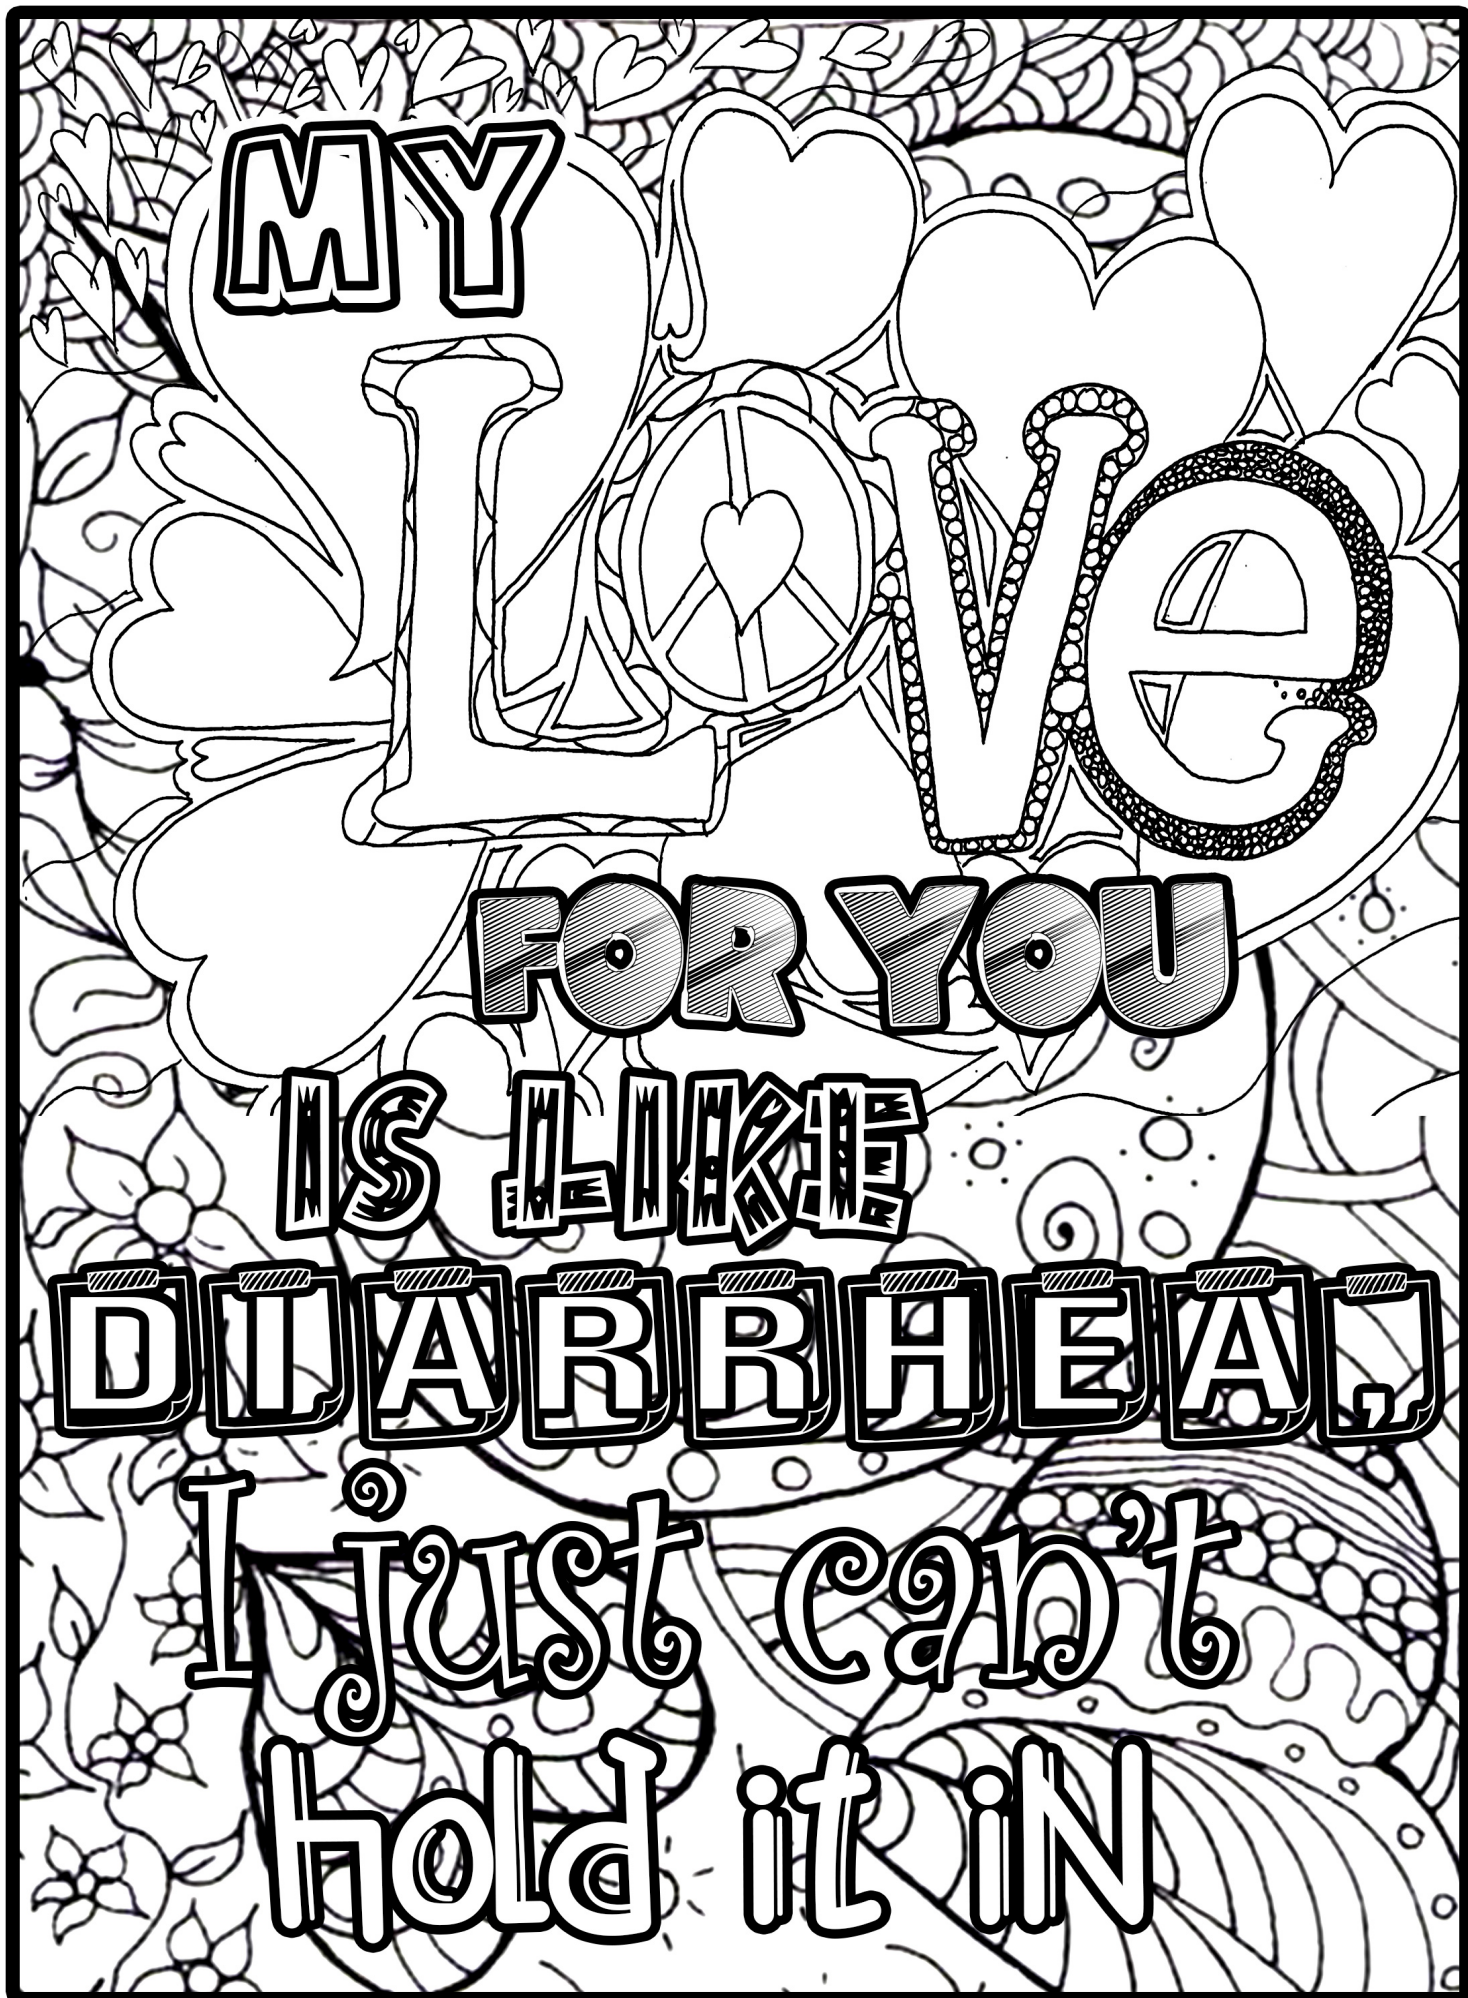 MY
Love
FOR YOU
IS LIKE
DIARRHEA,
I just can't
hold it iN